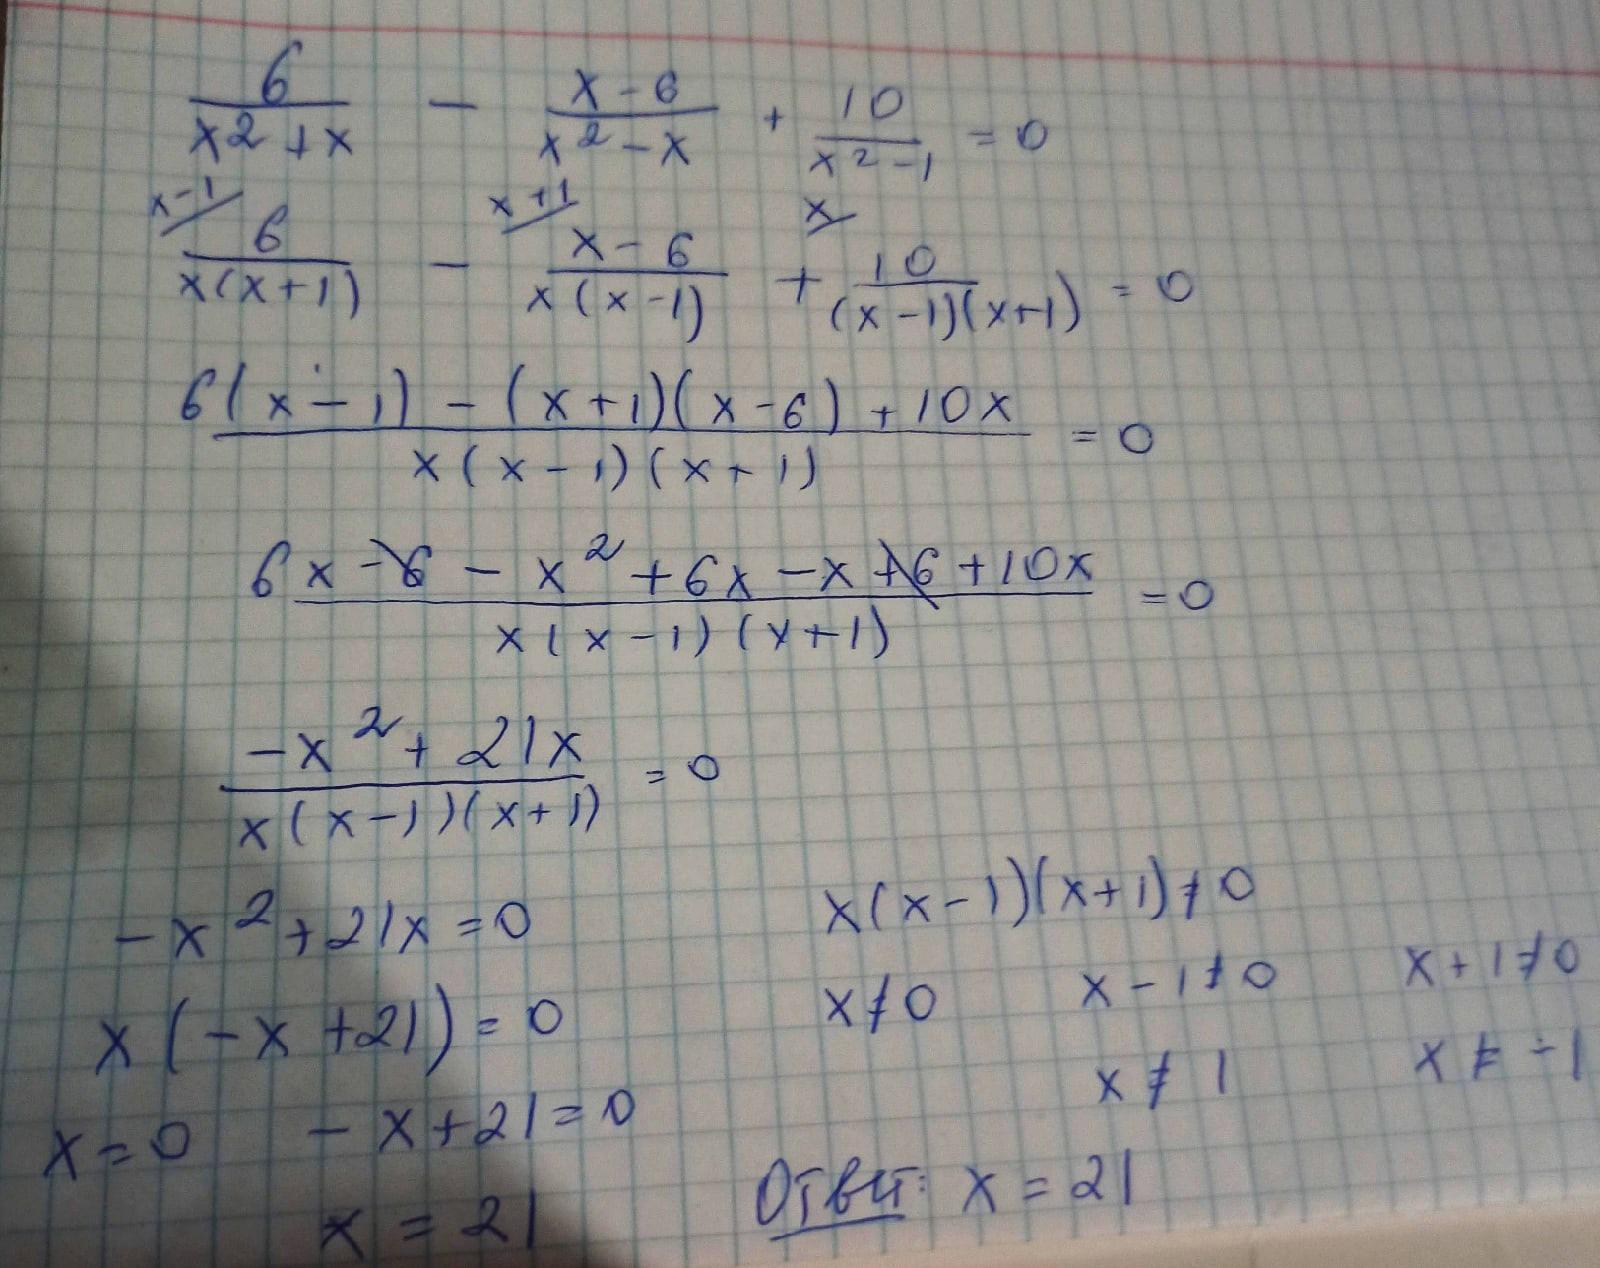 6/(x²+x) - (x-6)/(x²-x) + 10/(x²-1) = 0
x-1/ 6/(x(x+1)) - x+1/ (x-6)/(x(x-1)) + x/ 10/((x-1)(x+1)) = 0
(6(x-1) - (x+1)(x-6) + 10x)/(x(x-1)(x+1)) = 0
(6x-6-x²+6x-x+6+10x)/(x(x-1)(x+1)) = 0
(-x²+21x)/(x(x-1)(x+1)) = 0
-x²+21x=0
x(-x+21)=0
x=0 -x+21=0
x=21
x(x-1)(x+1)≠0
x≠0 x-1≠0 x+1≠0
x≠1 x≠-1
Ответ: x=21